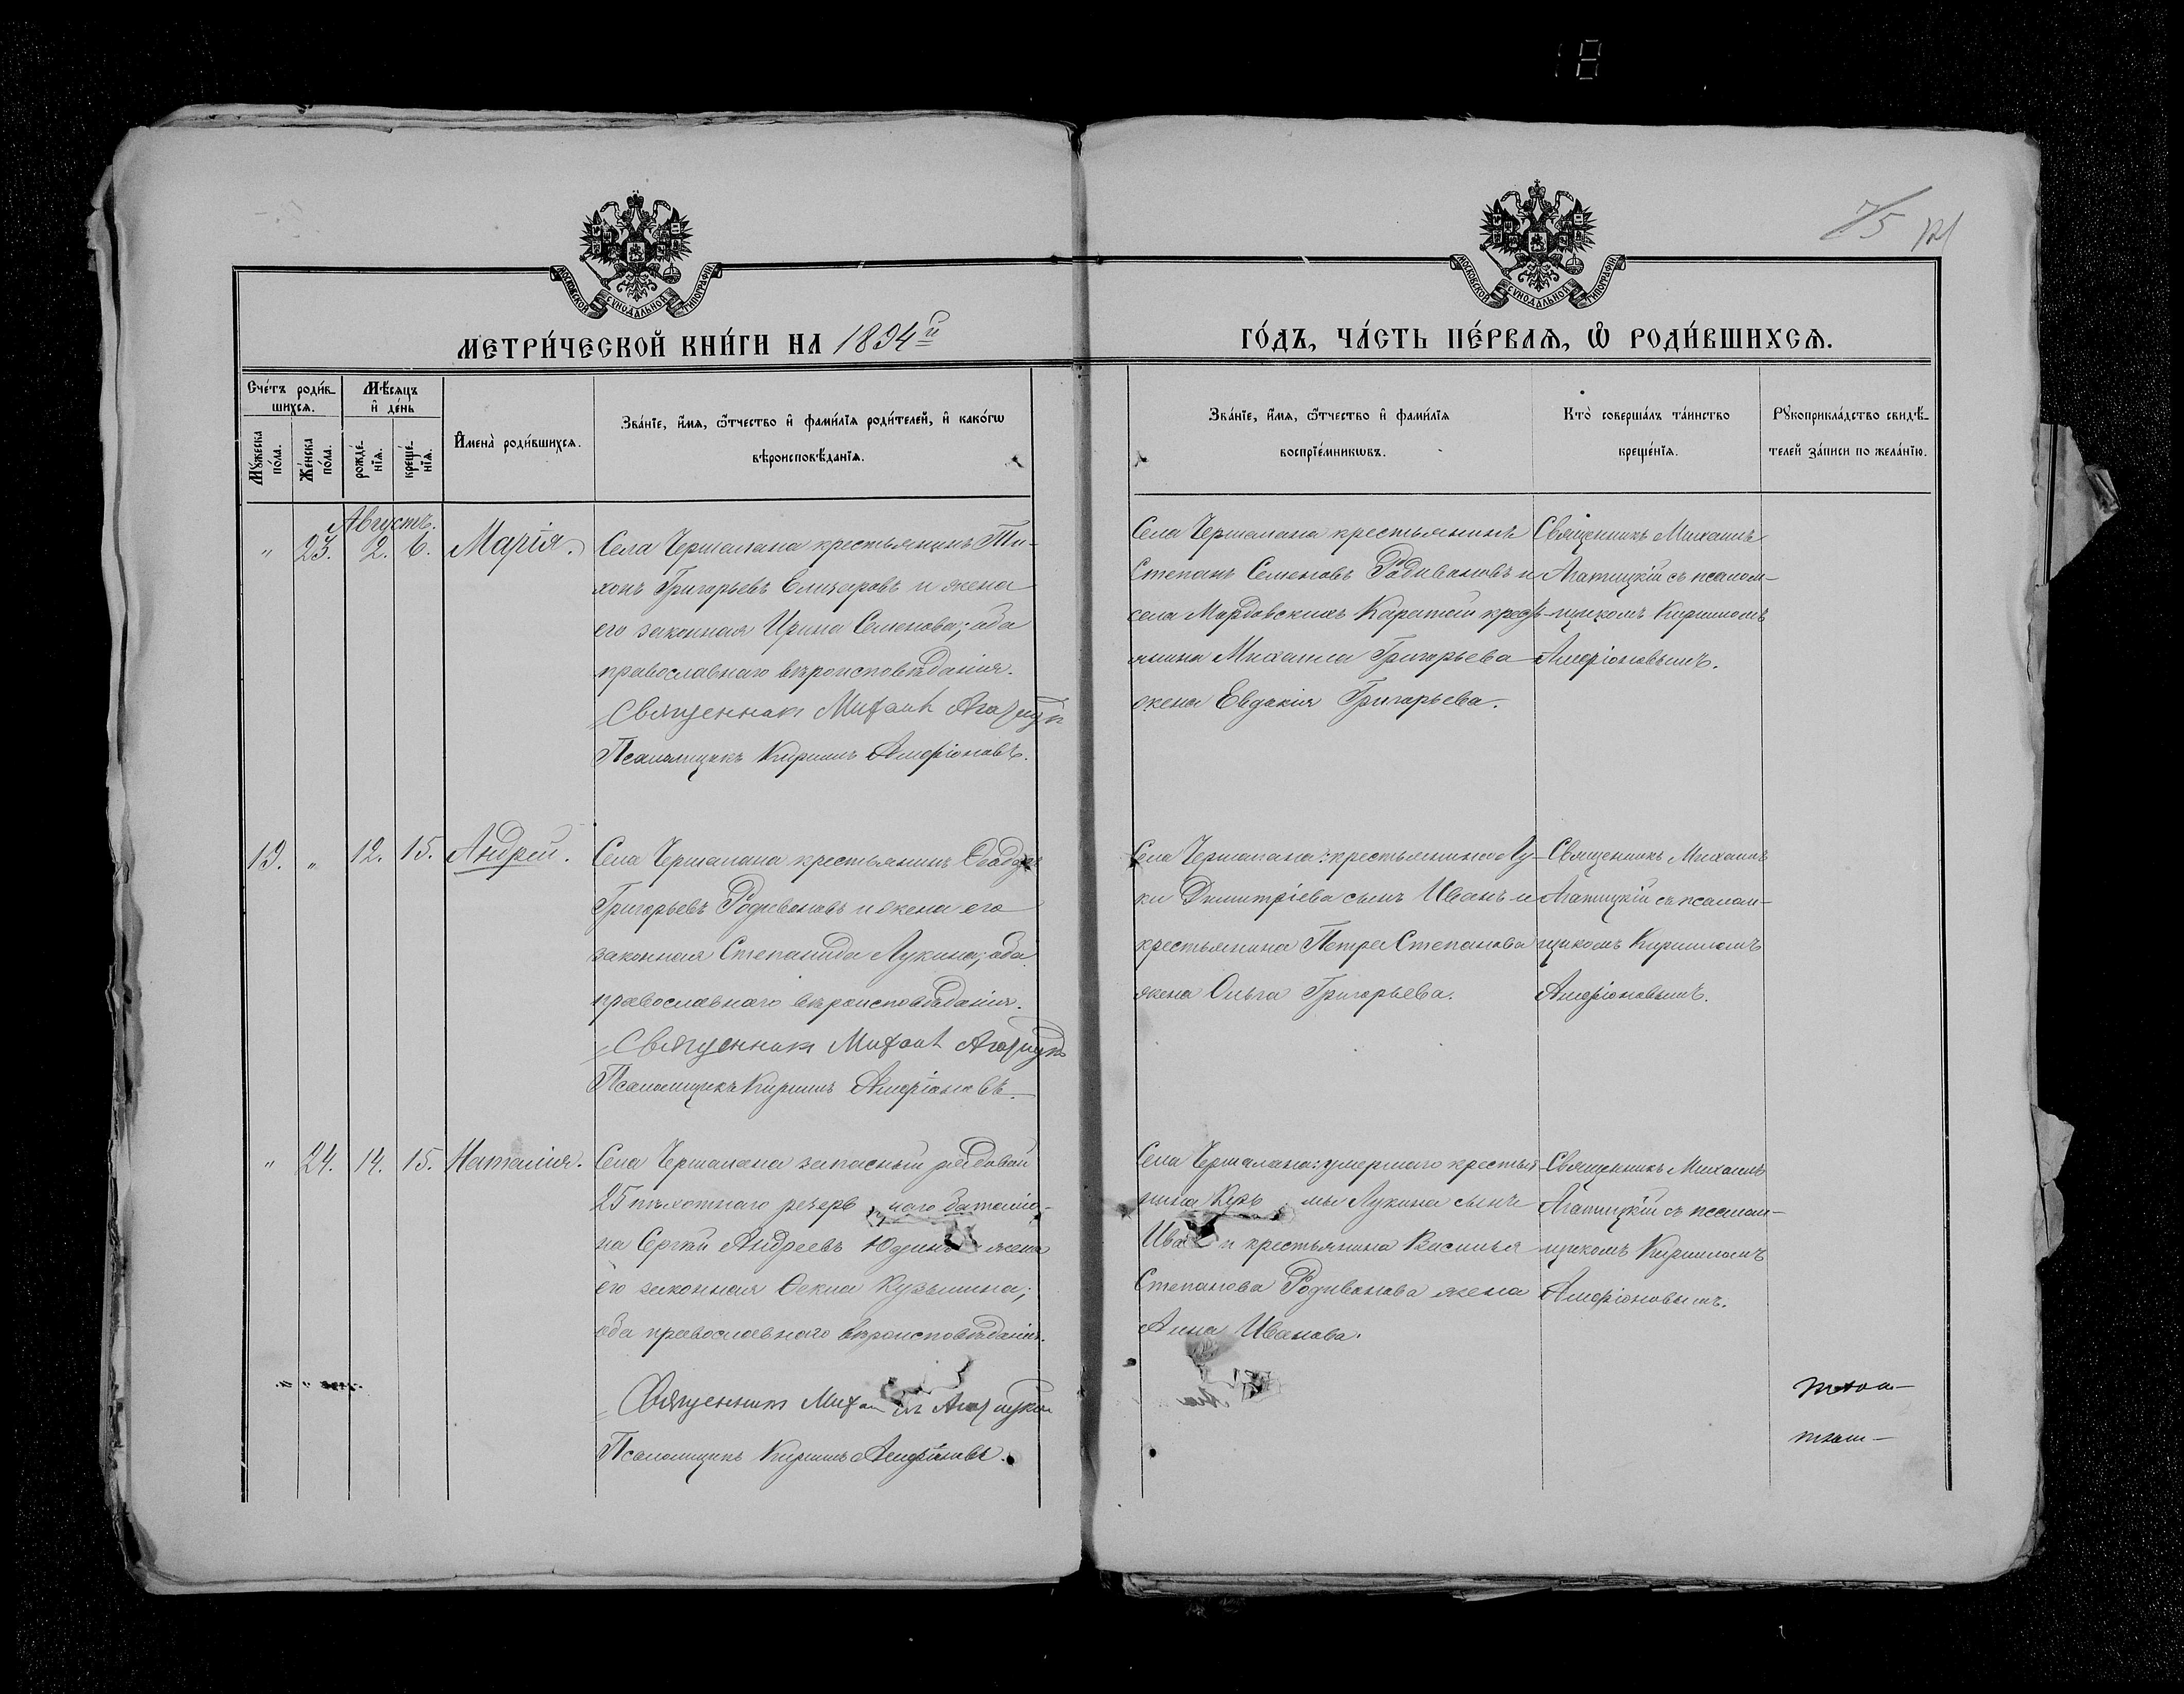 18
75 121
МОСКОВСКОЙ СУНОДАЛЬНОЙ ТИПОГРАФІИ
МОСКОВСКОЙ СУНОДАЛЬНОЙ ТИПОГРАФІИ
МЕТРИ́ЧЕСКОЙ КНИ́ГИ НА 1894й
ГО́ДЪ, ЧА́СТЬ ПЕ́РВАѦ, Ѡ РОДИ́ВШИХСѦ.
Сче́тъ роди́в-
шихсѧ.
Мѣ́сѧцъ
и де́нь
Мꙋ́жеска
по́ла.
Же́нска
по́ла.
рожде́-
нїѧ.
креще́-
нїѧ.
Имена̀ роди́вшихсѧ.
Зва́нїе, и́мѧ, ѿтчество и фами́лїѧ роди́телей, и како́гѡ
вѣроисповѣ́данїѧ.
Зва́нїе, и́мѧ, ѿтчество и фами́лїѧ
воспрїе́мникѡвъ.
Кто̀ соверша́лъ та́инство
креще́нїѧ.
Рꙋкоприкла́дство свидѣ́-
телей за́писи по жела́нїю.
Августъ.
" 23. 2. 6. Марія. Села Чершалана крестьянинъ Ти-
хонъ Григорьевъ Елизаровъ и жена
его законная Ирина Семенова; оба
православнаго вѣроисповѣданія.
Священникъ Михаилъ Агатицкій
Псаломщикъ Кириллъ Алфіоновъ.
Села Чершалана крестьянинъ
Степанъ Семеновъ Родивановъ и
села Мордовскихъ Каратай кресть-
янина Михаила Григорьева
жена Евдокія Григорьева.
Священникъ Михаилъ
Агатицкій съ псалом-
щикомъ Кирилломъ
Алфіоновымъ.
19. " 12. 15. Андрей. Села Чершалана крестьянинъ Ѳеодоръ
Григорьевъ Родивановъ и жена его
законная Степанида Лукина; оба
православнаго вѣроисповѣданія.
Священникъ Михаилъ Агатицкій
Псаломщикъ Кириллъ Алфіоновъ.
Села Чершалана: крестьянина Лу-
ки Димитріева сынъ Иванъ и
крестьянина Петра Степанова
жена Ольга Григорьева.
Священникъ Михаилъ
Агатицкій съ псалом-
щикомъ Кирилломъ
Алфіоновымъ.
" 24. 14. 15. Наталія. Села Чершалана запасный рядовой
25 пѣхотнаго резервнаго баталіо-
на Сергѣй Андреевъ Юдинъ и жена
его законная Ѳекла Кузьмина;
оба православнаго вѣроисповѣданія.
Священникъ Михаилъ Агатицкій
Псаломщикъ Кириллъ Алфіоновъ.
Села Чершалана: умершаго крестья-
нина Кузьмы Лукина сынъ
Иванъ и крестьянина Василья
Степанова Родиванова жена
Анна Иванова.
Священникъ Михаилъ
Агатицкій съ псалом-
щикомъ Кирилломъ
Алфіоновымъ.